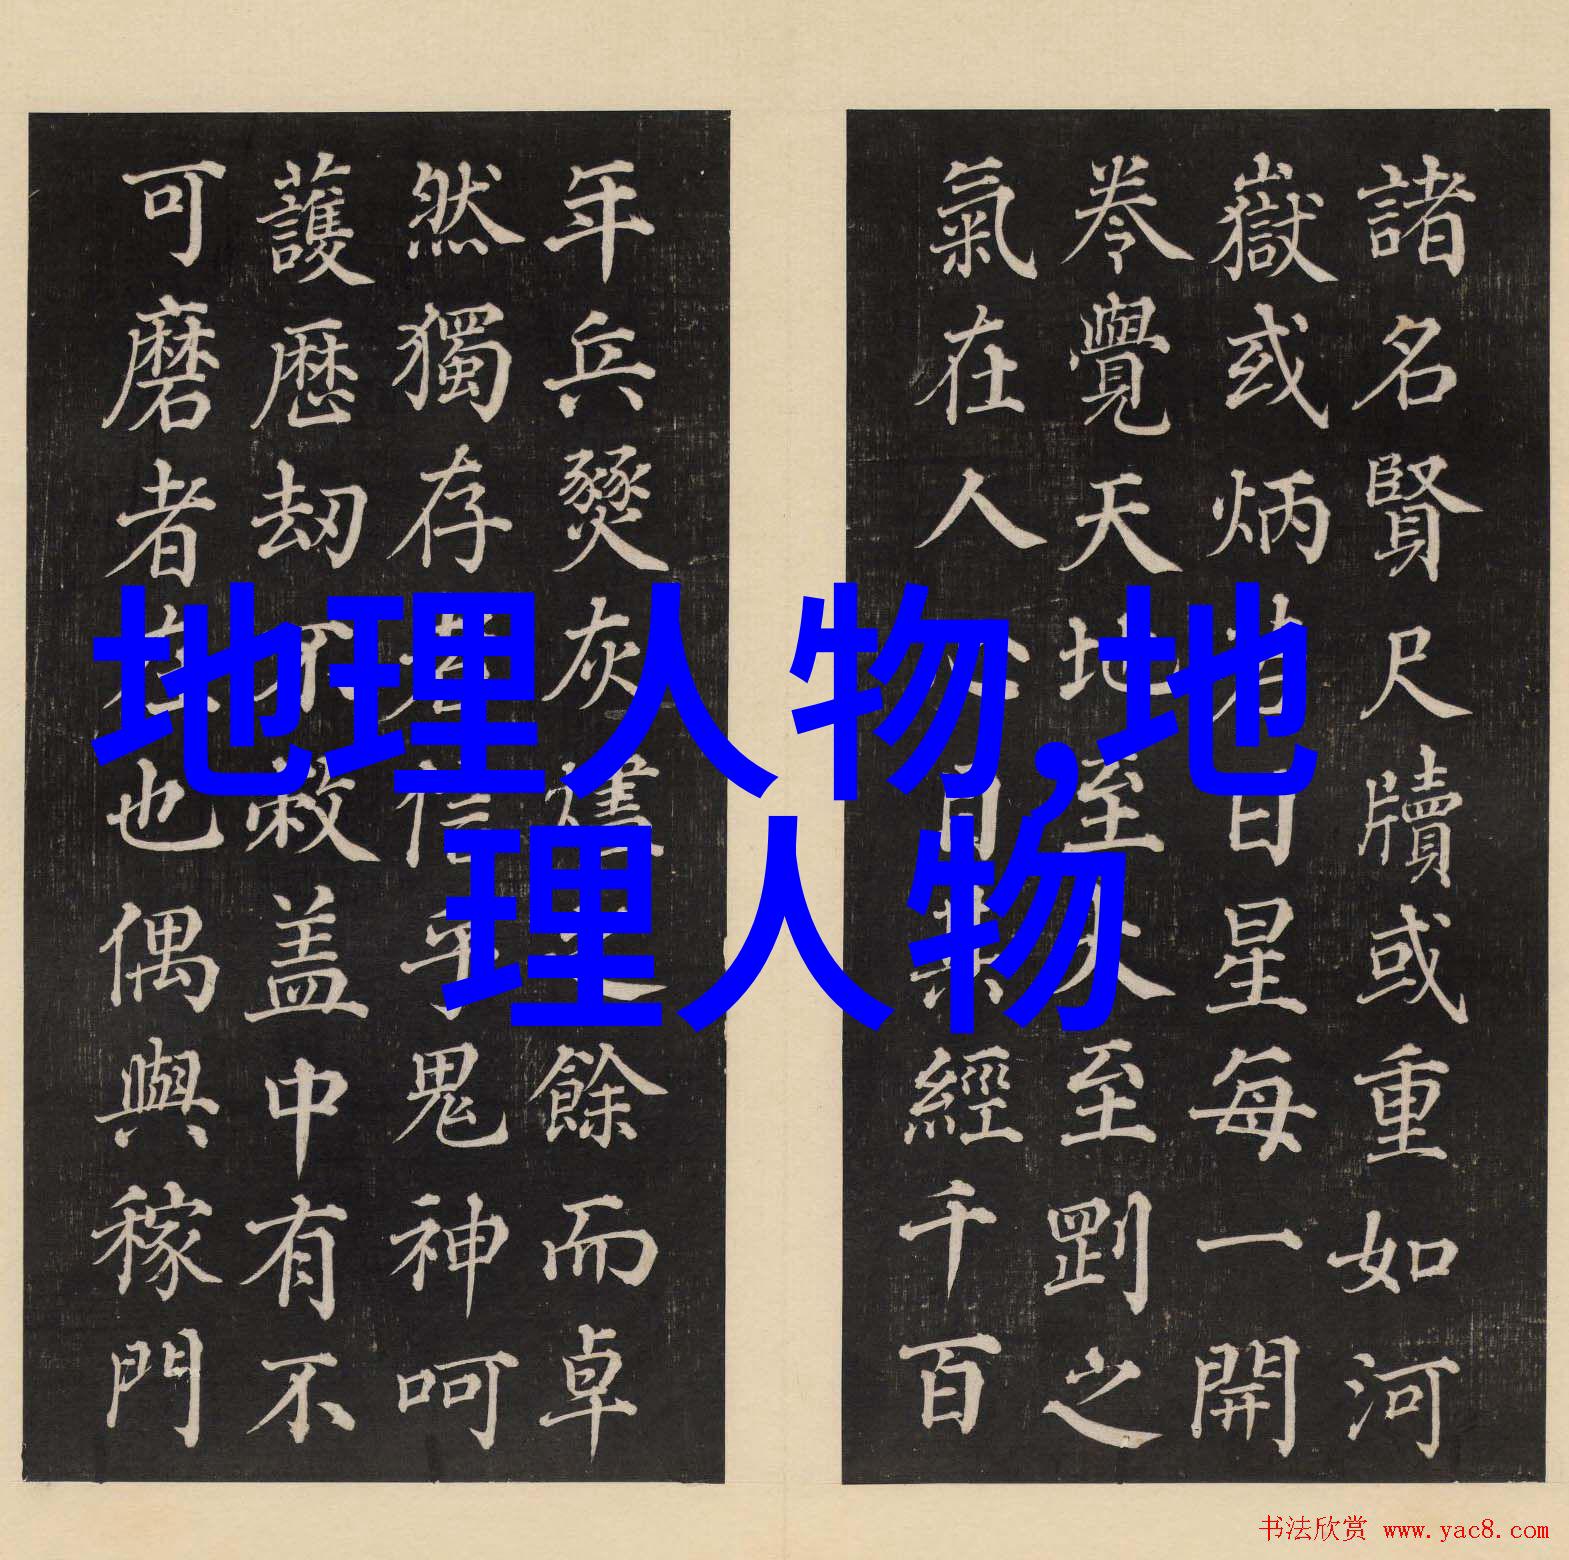 諸名賢尺牘或重如河
嶽或炳若日星每一開
卷覺天地至大至剛之
氣在人心目其經千百
年兵燹灰之餘而卓
然獨存者信乎鬼神呵
護厯刼不敝盖中有不
可磨者在也偶與稼門
地理人物,地
理人物
书法欣赏 www.yac8.com